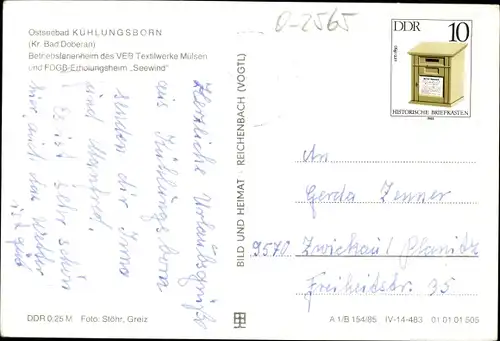 Ostseebad KÜHLUNGSBORN
(Kr. Bad Doberan)
Betriebsferienheim des VEB Textilwerke Mülsen
und FDGB-Erholungsheim „Seewind"
0-2565
DDR 10
um 1850
HISTORISCHE BRIEFKASTEN
1985
Herzliche Urlaubsgrüße
aus Kühlungsborn
senden dir Irma
und Manfred.
Es ist sehr schön
hier auch das Wetter
ist gut
BILD UND HEIMAT · REICHENBACH (VOGTL)
An
Gerda Zenner
9570 Zwickau/Planitz
Freiheitsstr. 35
DDR 0,25 M Foto: Stöhr, Greiz
A 1/B 154/85 IV-14-483 01 01 01 505